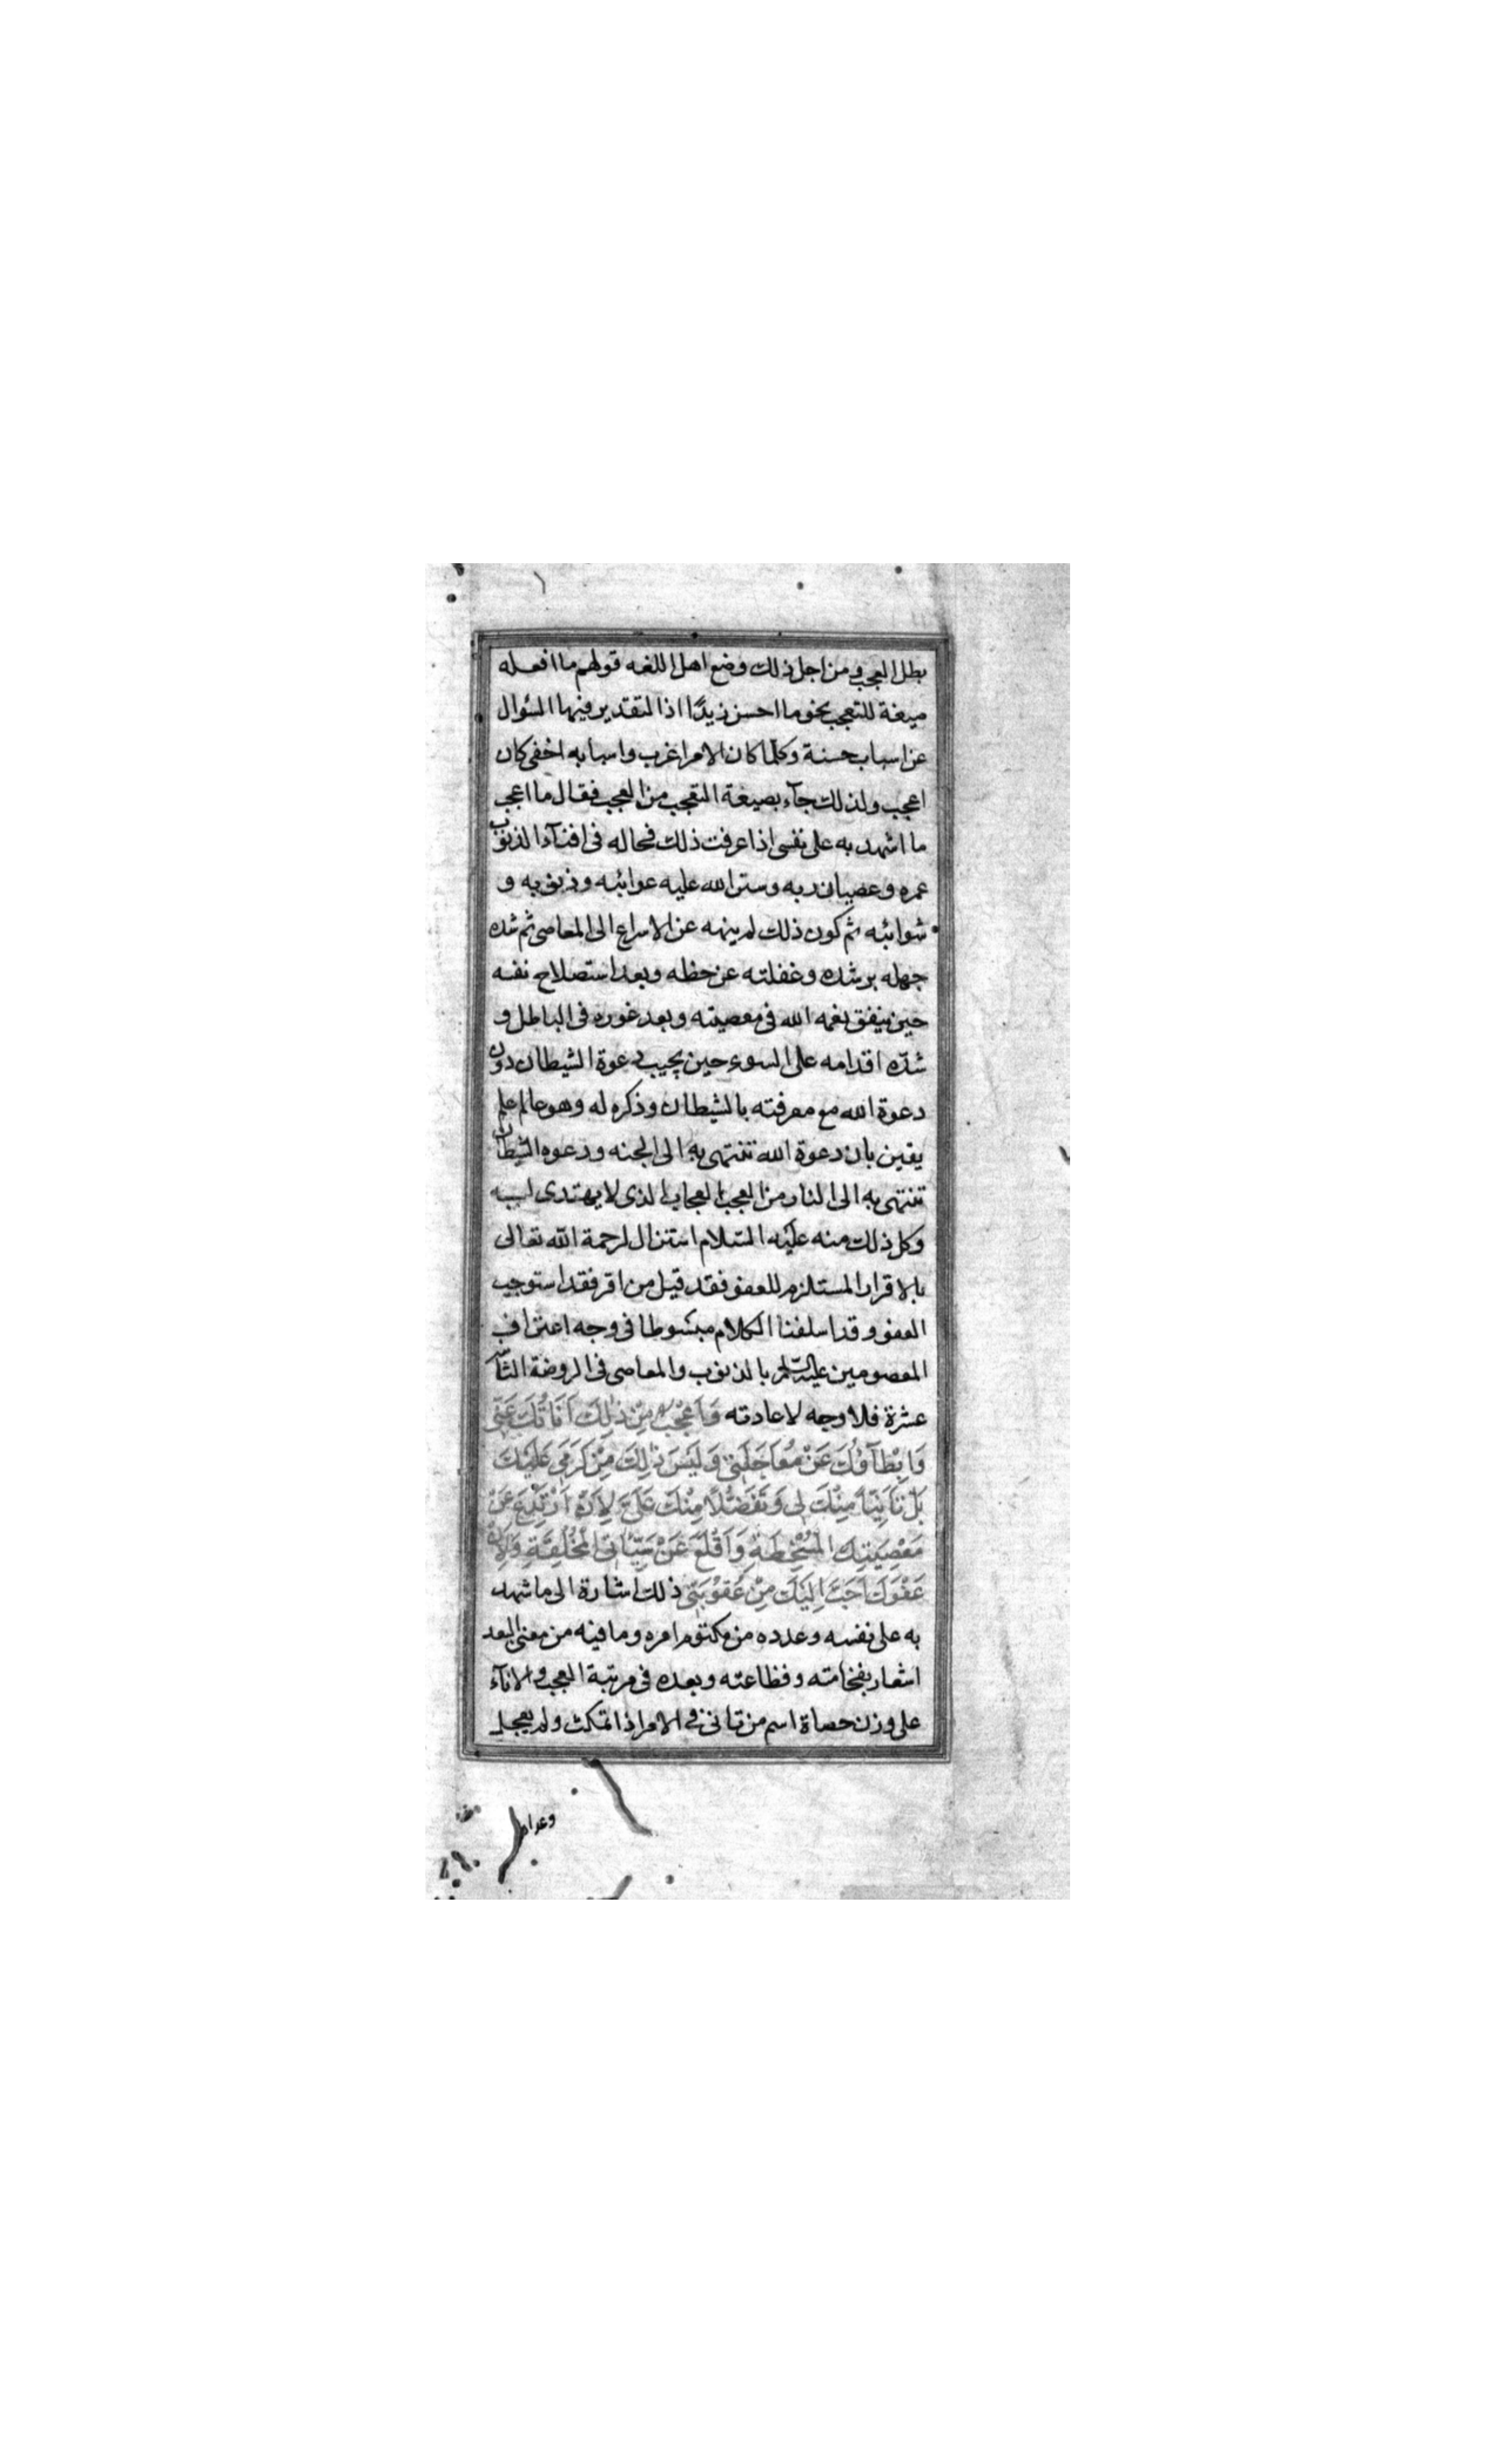 بطل العجب ومن اجل ذلك وضع اهل اللغه قولهم ما افعله
صيغة للتعجب نحو ما احسن زيدًا اذا التقدير فيها السئوال
عن اسباب حسنة وكلما كان الامر اغرب واسبابه اخفى كان
اعجب ولذلك جآء بصيغة التعجب من العجب فقال ما اعجب
ما اشهد به على نفسى اذا عرفت ذلك فحاله فى افنآء الذنوب
عمره وعصيان ربه وستر الله عليه عوائبه وذنوبه و
شوائبه ثم كون ذلك لم ينهه عن الاسراع الى المعاصى ثم شده
جهله برشده وغفلته عن حظه وبعد استصلاح نفسه
حين ينفق نعمه الله فى معصيته وبعد غوره فى الباطل و
شدّه اقدامه على السوء حين يجيب دعوة الشيطان دون
دعوة الله مع معرفته بالشيطان وذكره له وهو عالم علم
يقين بان دعوة الله تنتهى به الى الجنه ودعوه الشيطان
تنتهى به الى النار من العجب العجاب الذى لا يهتدى لسببه
وكل ذلك منه عليه السّلام استنزال لرحمة الله تعالى
بالاقرار المستلزم للعفو فقد قيل من اقر فقد استوجب
العفو وقد اسلفنا الكلام مبسوطا فى وجه اعتراف
المعصومين عليهم السّلم بالذنوب والمعاصى فى الروضة الثّا
عشرة فلا وجه لاعادته وَاَعْجَبُ مِنْ ذٰلِكَ اَنَاتُكَ عَنّى
وَاِبْطَآؤُكَ عَنْ مُعَاجَلَتى وَلَيْسَ ذٰلِكَ مِنْ كَرَمى عَلَيْكَ
بَلْ تَاَنِّيًا مِنْكَ لى وَتَفَضُّلًا مِنْكَ عَلَىَّ لِاَنْ اَرْتَدِعَ عَنْ
مَعْصِيَتِكَ الْمُسْخِطَةِ وَاَقْلَعَ عَنْ سَيِّئاتى الْمُخْلِقَةِ وَلِاَنَّ
عَفْوَكَ اَحَبُّ اِلَيْكَ مِنْ عُقُوبَتى ذلك اشارة الى ما شهد
به على نفسه وعدده من مكتوم امره وما فيه من معنى البعد
اشعار بفخامته وفظاعته وبعده فى مرتبة العجب والانآء
على وزن حصاة اسم من تانى فى الامر اذا تمكث ولم يعجل